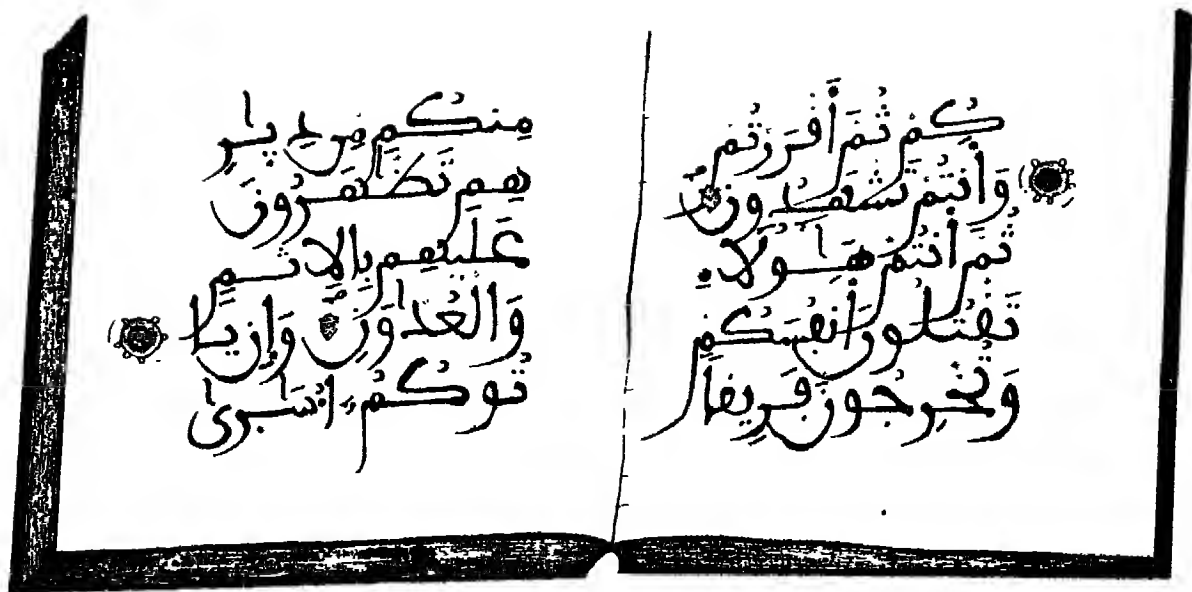 كُمْ ثُمَّ أَقْرَرْتُمْ
وَأَنتُمْ تَشْهَدُونَ
ثُمَّ أَنتُمْ هَٰؤُلَاءِ
تَقْتُلُونَ أَنفُسَكُمْ
وَتُخْرِجُونَ فَرِيقًا
مِنكُم مِّن دِيَٰرِ
هِمْ تَظَّٰهَرُونَ
عَلَيْهِم بِالْإِثْمِ
وَالْعُدْوَٰنِ وَإِن يَأْ
تُوكُمْ أُسَٰرَىٰ